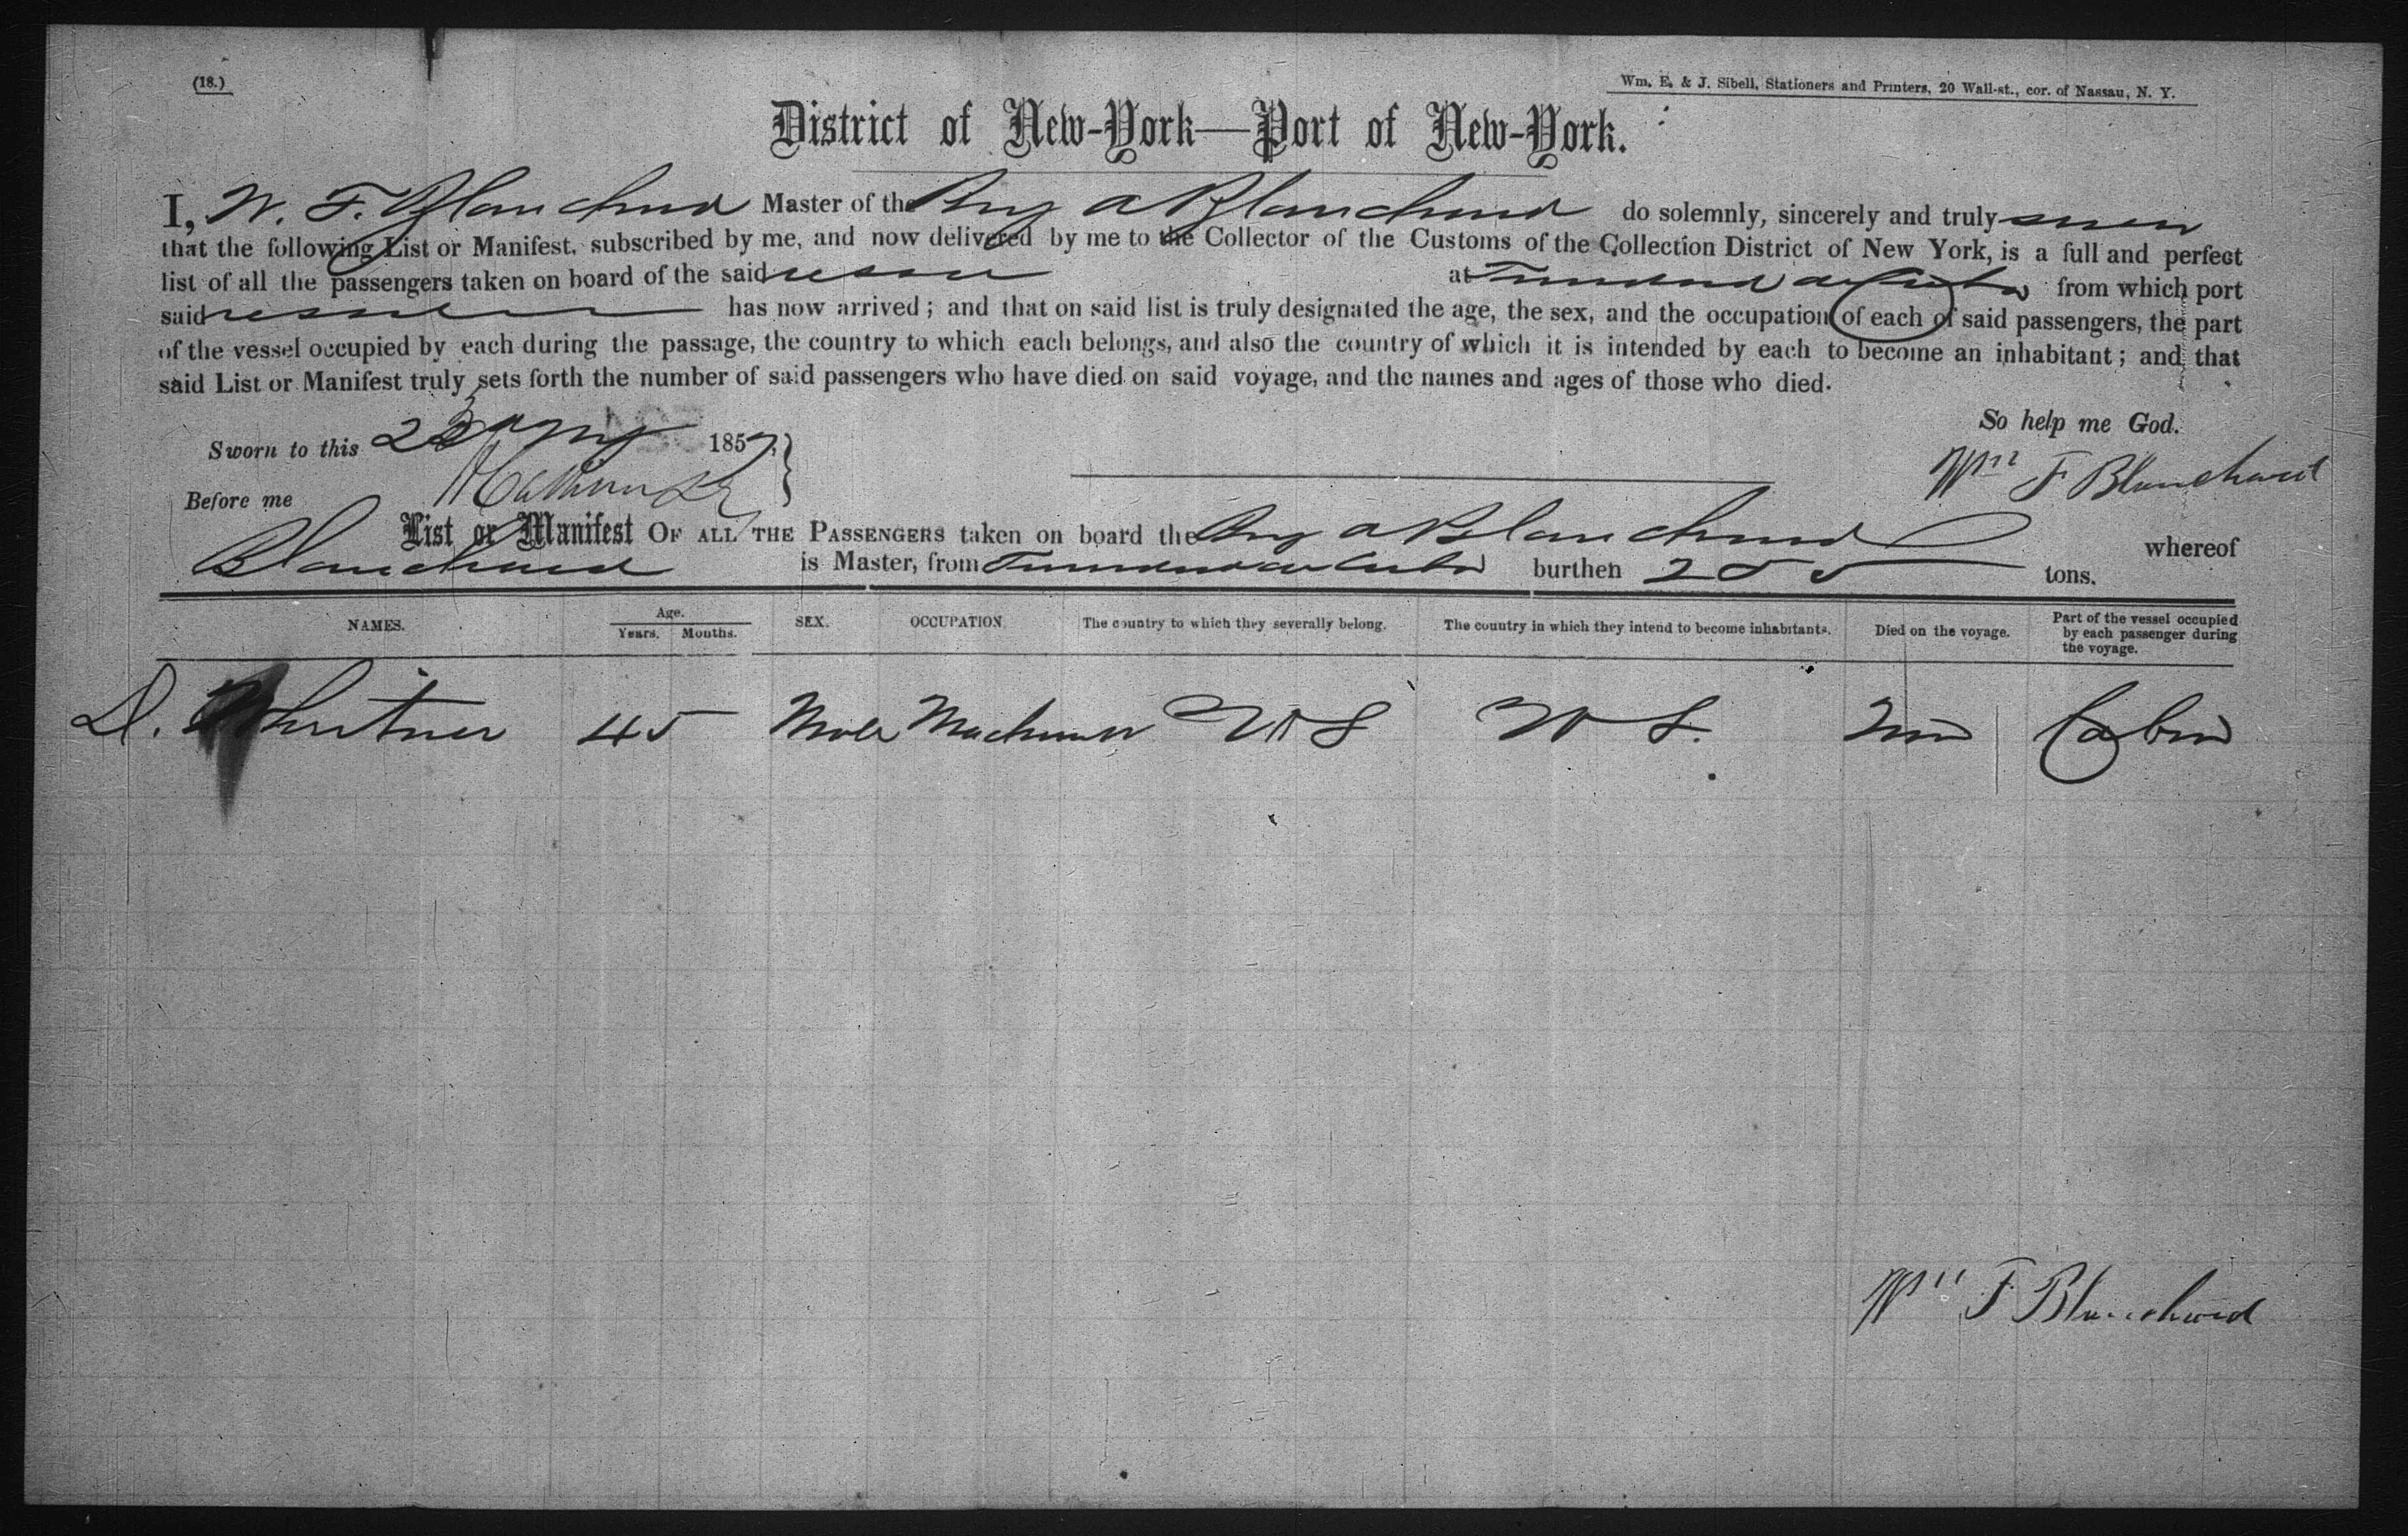 (18.)
Wm. E. & J. Sibell, Stationers and Printers, 20 Wall-st., cor. of Nassau, N. Y.
District of New-York—Port of New-York.
I, W. F. Blanchard Master of the Brig A Blanchard do solemnly, sincerely and truly swear
that the following List or Manifest, subscribed by me, and now delivered by me to the Collector of the Customs of the Collection District of New York, is a full and perfect
list of all the passengers taken on board of the said vessel at Trinidad de Cuba from which port
said vessel has now arrived; and that on said list is truly designated the age, the sex, and the occupation of each of said passengers, the part
of the vessel occupied by each during the passage, the country to which each belongs, and also the country of which it is intended by each to become an inhabitant; and that
said List or Manifest truly sets forth the number of said passengers who have died on said voyage, and the names and ages of those who died.
So help me God.
Sworn to this 1857,
Wm F Blanchard
Before me
List or Manifest OF ALL THE PASSENGERS taken on board the Brig A Blanchard whereof
Blanchard is Master, from Trinidad de Cuba burthen 255 tons.
NAMES. Age. Years. Months. SEX. OCCUPATION. The country to which they severally belong. The country in which they intend to become inhabitants. Died on the voyage. Part of the vessel occupied by each passenger during the voyage.
D. 45 Male Machinist U S U S. Cabin
Wm F Blanchard